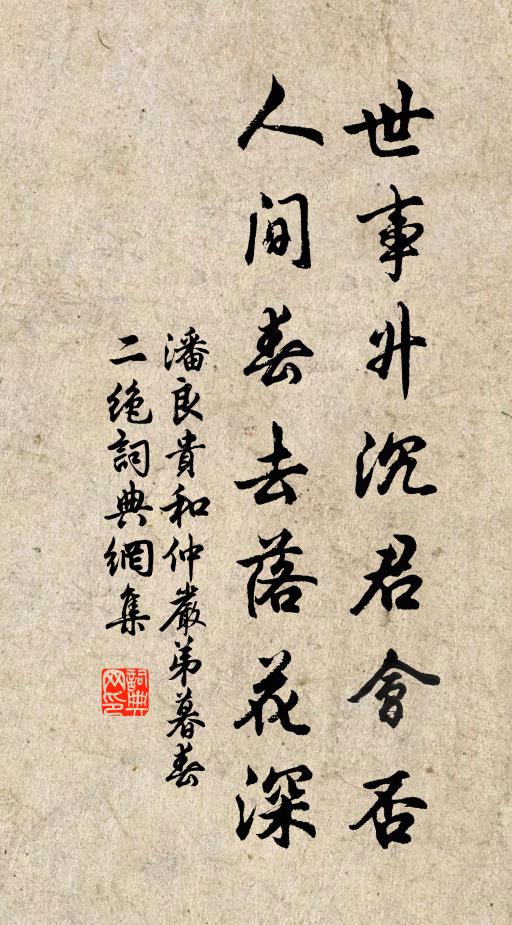 世事升沉君會否
人间春去落花深
潘良貴和仲嚴弟暮春
二绝詞典網集
詞典网印